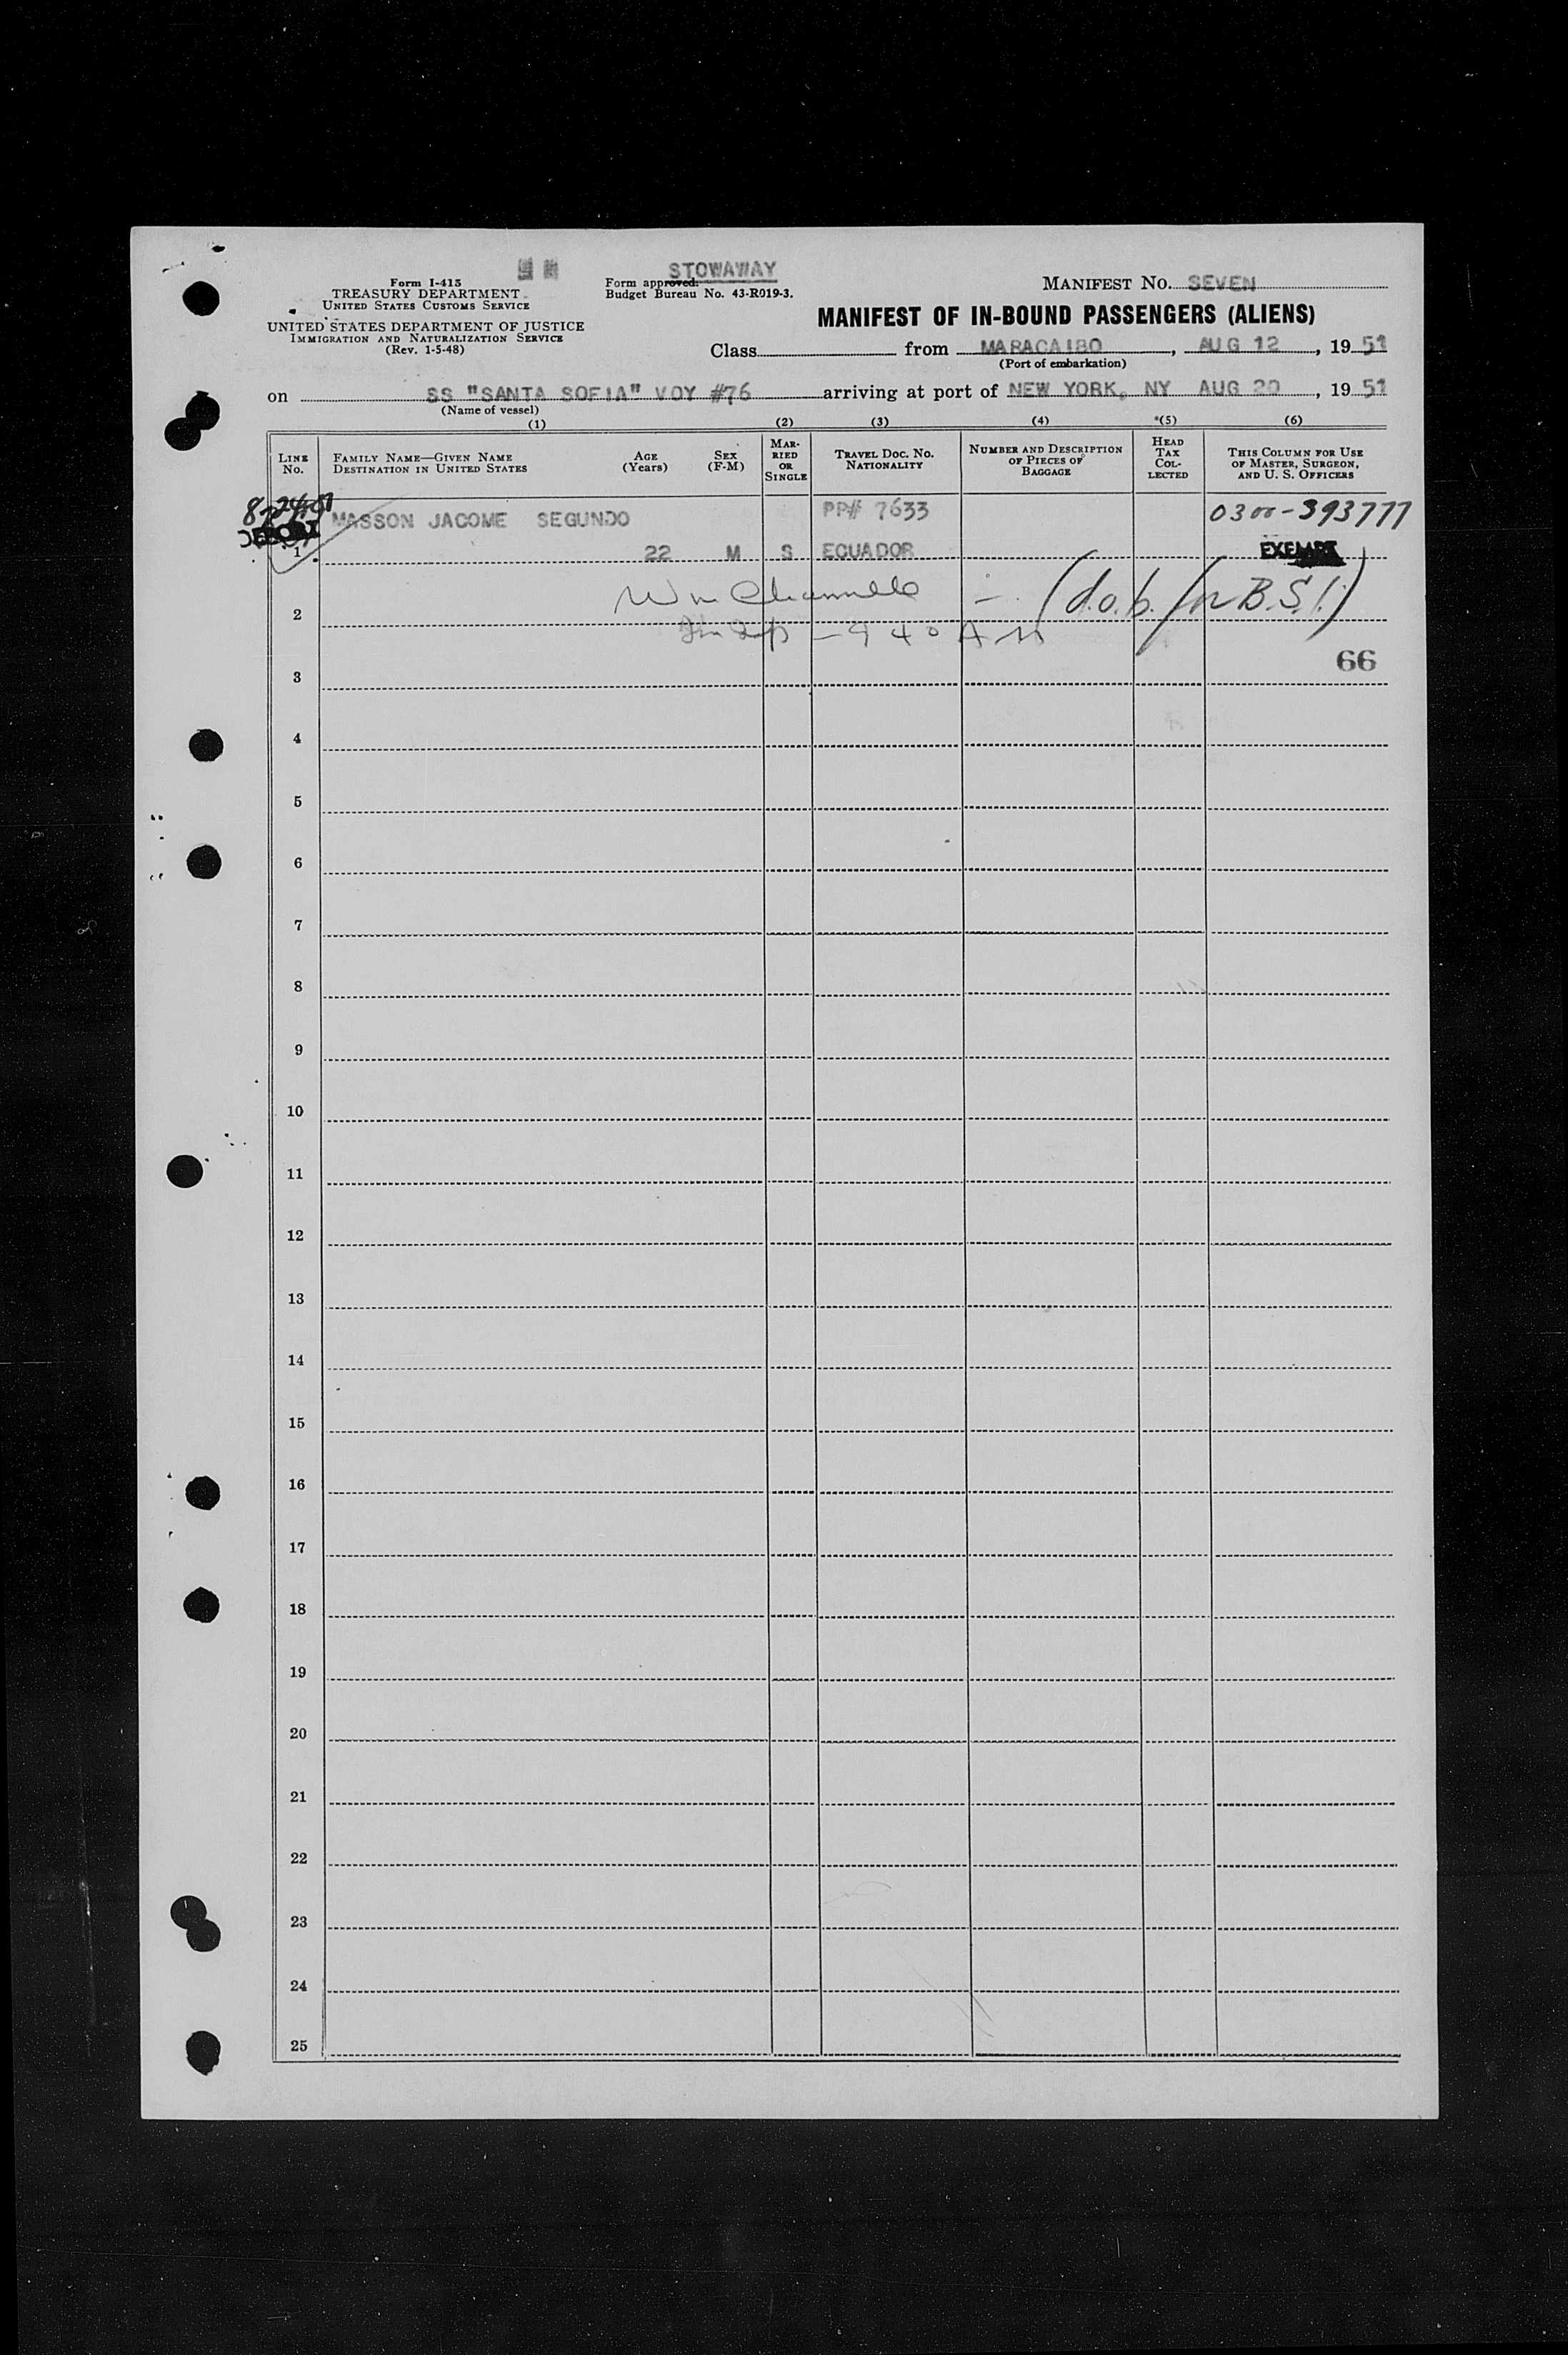 STOWAWAY
Form I-415
TREASURY DEPARTMENT
UNITED STATES CUSTOMS SERVICE
UNITED STATES DEPARTMENT OF JUSTICE
IMMIGRATION AND NATURALIZATION SERVICE
(Rev. 1-5-48)
Form approved.
Budget Bureau No. 43-R019-3.
MANIFEST NO. SEVEN
MANIFEST OF IN-BOUND PASSENGERS (ALIENS)
Class from MARACAIBO, AUG 12, 1951
(Port of embarkation)
on SS "SANTA SOFIA" VOY #76 arriving at port of NEW YORK, NY AUG 20, 1951
(Name of vessel)
(1) (2) (3) (4) *(5) (6)
LINE NO.
FAMILY NAME—GIVEN NAME
DESTINATION IN UNITED STATES
AGE (Years)
SEX (F-M)
MARRIED OR SINGLE
TRAVEL DOC. NO.
NATIONALITY
NUMBER AND DESCRIPTION
OF PIECES OF
BAGGAGE
HEAD TAX COLLECTED
THIS COLUMN FOR USE
OF MASTER, SURGEON,
AND U. S. OFFICERS
MASSON JACOME SEGUNDO PP# 7633 0300-393777
1 22 M S ECUADOR EXEMPT
(d.o.b. B.S.I.)
2
940 AM
66
3
4
5
6
7
8
9
10
11
12
13
14
15
16
17
18
19
20
21
22
23
24
25